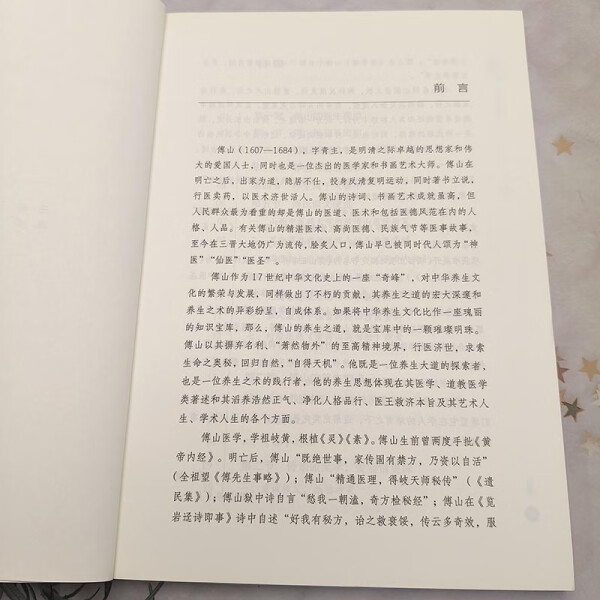 前 言
傅山（1607—1684），字青主，是明清之际卓越的思想家和伟
大的爱国人士，同时也是一位杰出的医学家和书画艺术大师。傅山在
明亡之后，出家为道，隐居不仕，投身反清复明运动，同时著书立说，
行医卖药，以医术济世活人。傅山的诗词、书画艺术成就虽高，但
人民群众最为看重的却是傅山的医道、医术和包括医德风范在内的人
格、人品。有关傅山的精湛医术、高尚医德、民族气节等医事故事，
至今在三晋大地仍广为流传，脍炙人口，傅山早已被同时代人颂为“神
医”“仙医”“医圣”。
傅山作为 17 世纪中华文化史上的一座“奇峰”，对中华养生文
化的繁荣与发展，同样做出了不朽的贡献，其养生之道的宏大深邃和
养生之术的异彩纷呈，自成体系。如果将中华养生文化比作一座瑰丽
的知识宝库，那么，傅山的养生之道，就是宝库中的一颗璀璨明珠。
傅山以其摒弃名利、“萧然物外”的至高精神境界，行医济世，求索
生命之奥秘，回归自然，“自得天机”。他既是一位养生大道的探索者，
也是一位养生之术的践行者，他的养生思想体现在其医学、道教医学
类著述和其涵养浩然正气、净化人格品行、医王救济本旨及其艺术人
生、学术人生的各个方面。
傅山医学，学祖岐黄，根植《灵》《素》。傅山生前曾两度手批《黄
帝内经》。明亡后，傅山“既绝世事，家传固有禁方，乃资以自活”
（全祖望《傅先生事略》）；傅山“精通医理，得岐天师秘传”（《遗
民集》）；傅山狱中诗自言“愁我一朝溘，奇方检秘经”；傅山在《览
岩迳诗即事》诗中自述“好我有秘方，诒之救衰馁，传云多奇效，服